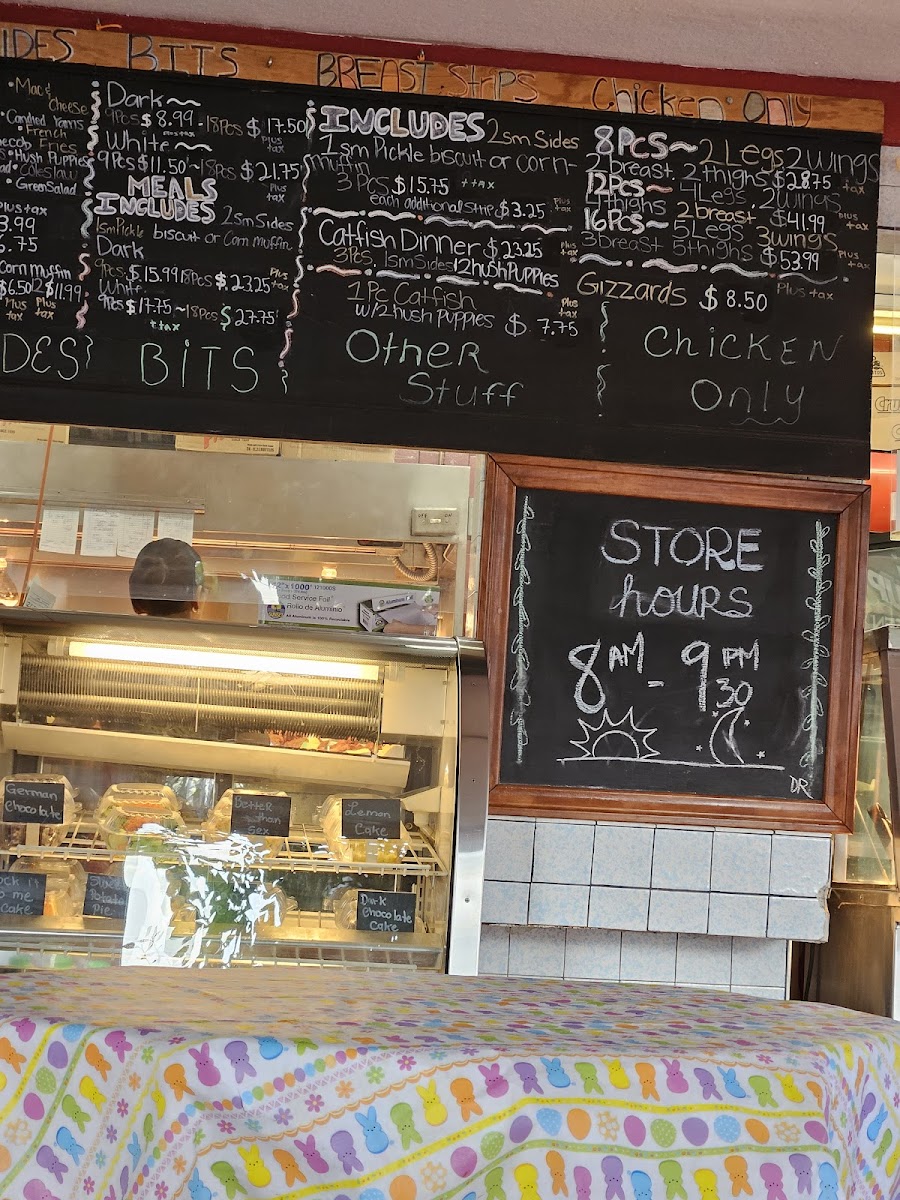 IDES BITS BREAST Strips Chicken Only
• Mac &
Cheese
• Candied Yams
• French
Fries
• Hush Puppies
• Coleslaw
• Green Salad
plus tax
3.99
6.75
Corn muffin
$6.50 12 $11.99
Plus tax Plus tax
DES
Dark
9Pcs $8.99 - 18Pcs $17.50
plus tax
White
9Pcs $11.50 - 18Pcs $21.75
Plus tax
MEALS
INCLUDES 2sm Sides
1sm Pickle biscuit or Corn muffin
Dark
9Pcs $15.99 18Pcs $23.25 Plus tax
White
9Pcs $17.75 ~ 18Pcs $27.75
+tax
BITS
INCLUDES 2sm Sides
1sm Pickle biscuit or corn-
muffin
3 PCS $15.75 +tax
each additional Strip $3.25 Plus tax
Catfish Dinner $23.25 Plus tax
3Pcs, 1sm Sides 12 hush Puppies
1Pc Catfish
w/2 hush Puppies $7.75 Plus tax
Other
Stuff
8Pcs~ 2 Legs 2 wings
2 breast, 2 thighs $28.75 +tax
12Pcs~ 4 Legs, 2 wings
4 thighs 2 breast $41.99 plus +tax
16Pcs~ 5 Legs 3 wings
3 breast 5 thighs $53.99 Plus +tax
Gizzards $8.50 Plus +tax
Chicken
Only
STORE
hours
8 AM - 9 30 PM
DR
12" x 1000'
Food Service Foil
Rollo de Aluminio
German
Chocolate
Better
than
Sex
Lemon
Cake
me
Cake
Sweet
Potato
Pie
Dark
Chocolate
Cake